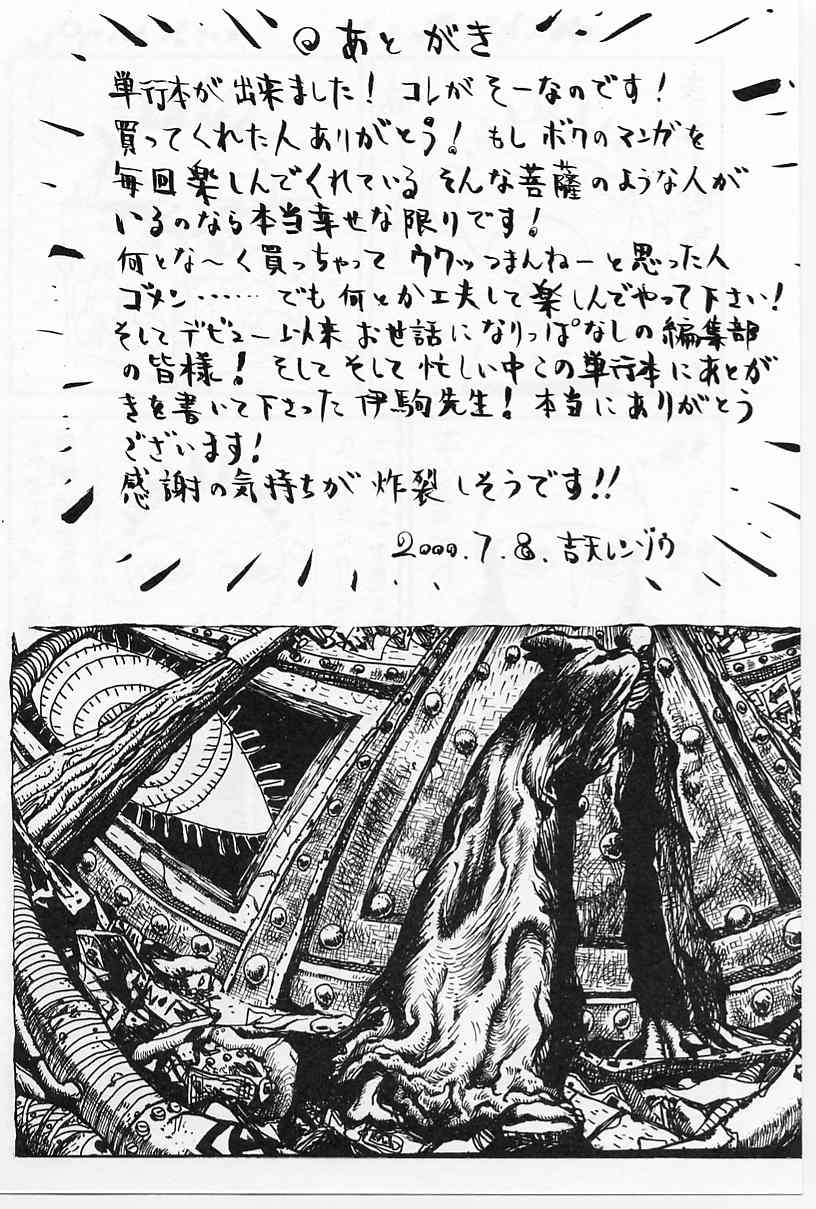 ◎あとがき
単行本が出来ました! コレがそーなのです!
買ってくれた人ありがとう! もしボクのマンガを
毎回楽しんでくれている そんな菩薩のような人が
いるのなら本当幸せな限りです!
何とな〜く買っちゃって ウワッつまんねーと思った人
ゴメン…… でも何とか工夫して楽しんでやって下さい!
そしてデビュー以来お世話になりっぱなしの編集部
の皆様! そしてそして忙しい中この単行本にあとが
きを書いて下さった伊駒先生! 本当にありがとう
ございます!
感謝の気持ちが炸裂しそうです!!
2000.7.8. 吉天レンゾウ